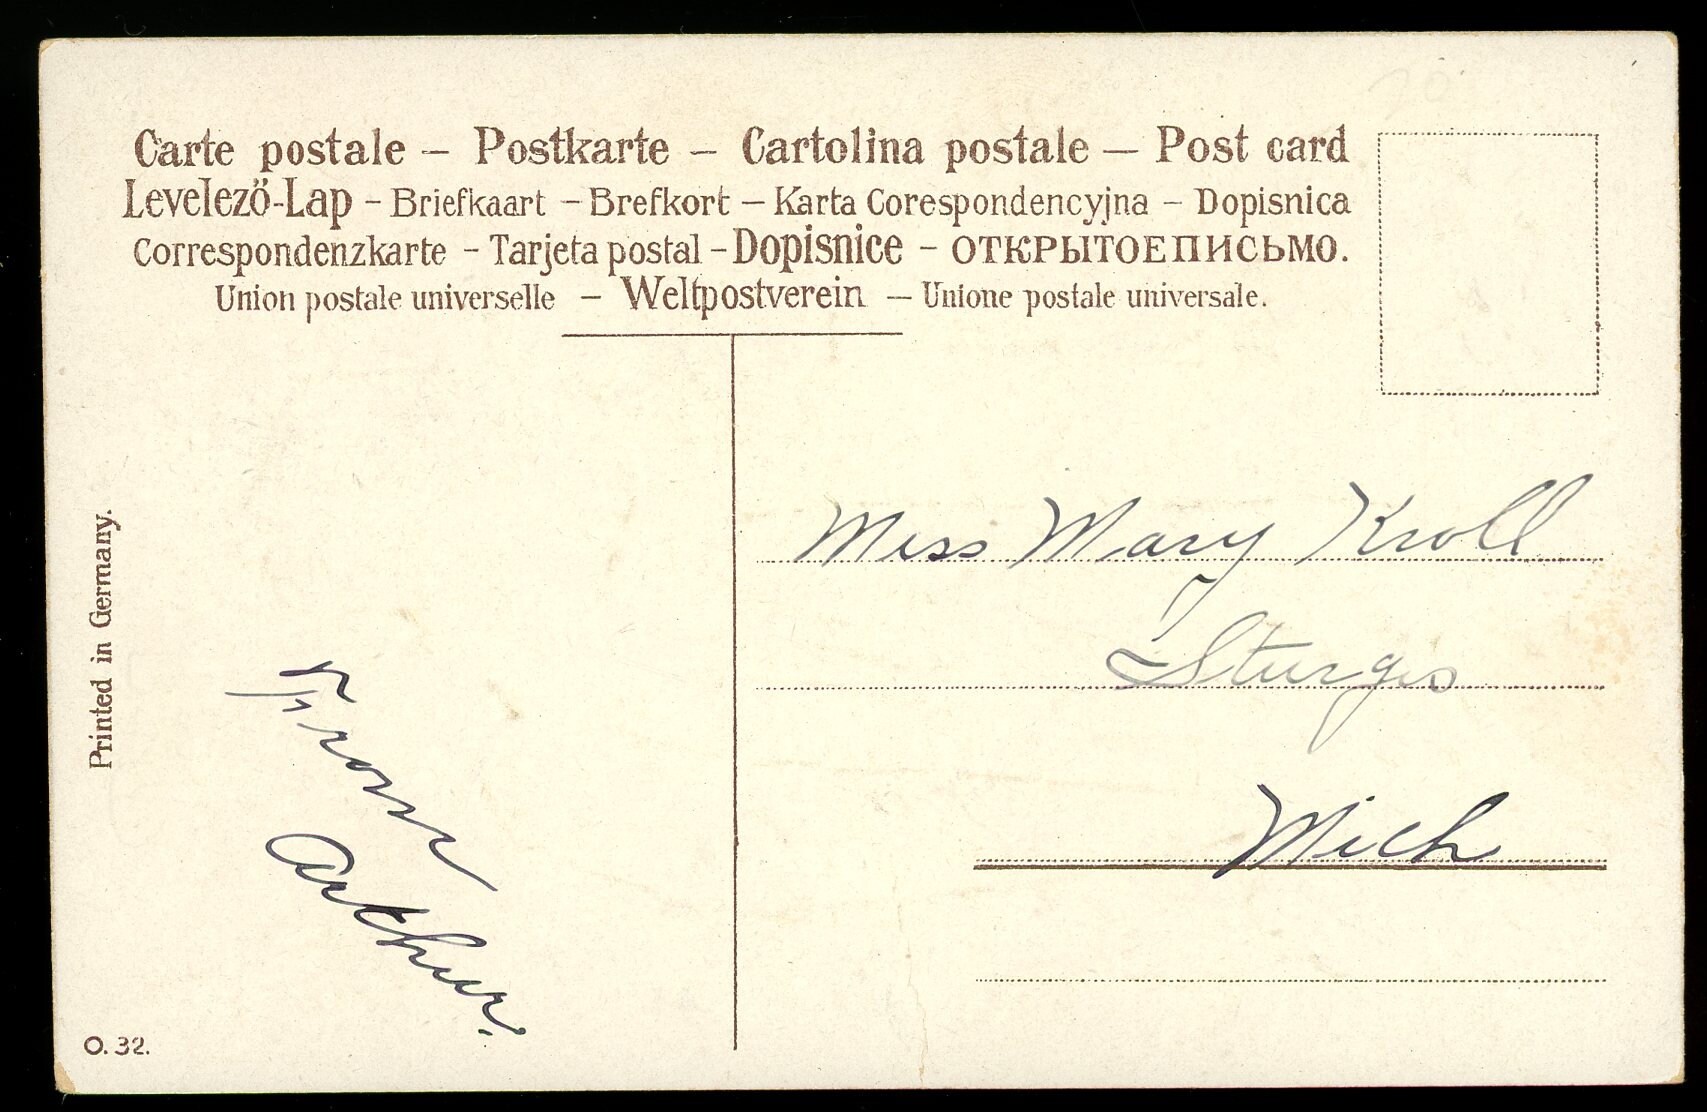 Carte postale – Postkarte – Cartolina postale – Post card
Levelező-Lap – Briefkaart – Brefkort – Karta Corespondencyjna – Dopisnica
Correspondenzkarte – Tarjeta postal – Dopisnice – ОТКРЫТОЕПИСЬМО.
Union postale universelle – Weltpostverein – Unione postale universale.
Printed in Germany.
Miss Mary Kroll
Sturgis
Mich
From
Arthur.
O. 32.